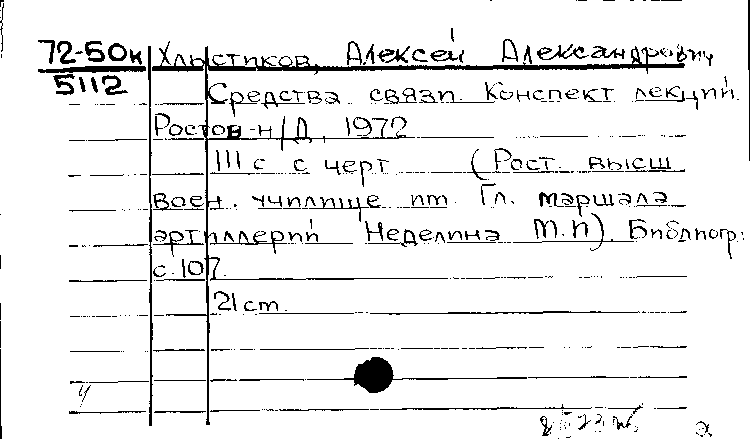 72-50к Хлыстиков, Алексей Александрович
5112
Средства связи. Конспект лекций.
Ростов-н/Д, 1972
111 с с черт (Рост. высш
воен. училище им. Гл. маршала
артиллерии Неделина М.И). Библиогр:
с. 107.
21 cm.
4
2